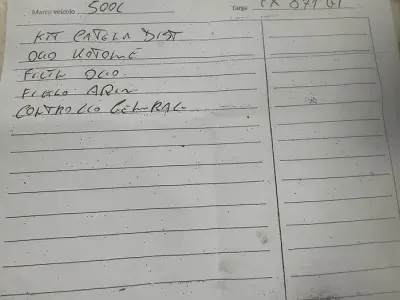 Marca veicolo 500L Targa FX 071
KIT CATENA DIST
OLIO MOTORE
FILTR OLIO
FILTRO ARIA
CONTROLLO GENERALE